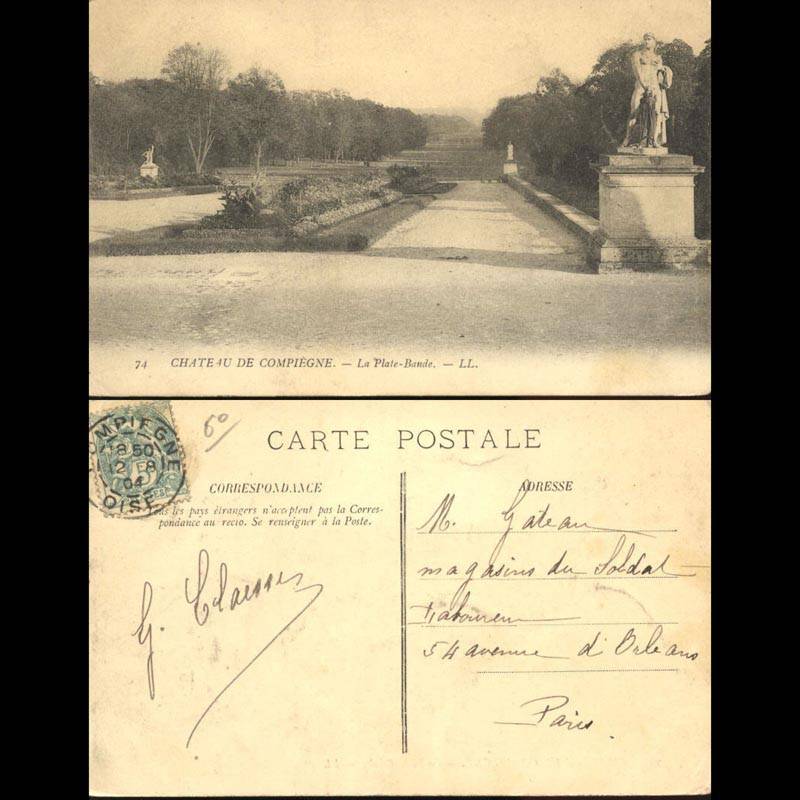 74 CHATEAU DE COMPIÈGNE. — La Plate-Bande. — LL.
COMPIEGNE
18 50
2 - 8
04
OISE
60
CARTE POSTALE
CORRESPONDANCE
Tous les pays étrangers n'acceptent pas la Corres-
pondance au recto. Se renseigner à la Poste.
G. Claessens
ADRESSE
M. Gateau
magasins du Soldat
Laboureur
54 avenue d'Orleans
Paris.